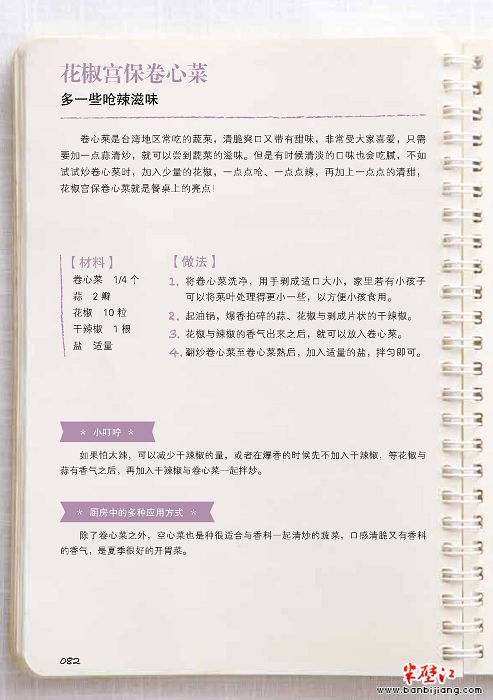 花椒宫保卷心菜
多一些呛辣滋味
卷心菜是台湾地区常吃的蔬菜，清脆爽口又带有甜味，非常受大家喜爱，只需
要加一点蒜清炒，就可以尝到蔬菜的滋味。但是有时候清淡的口味也会吃腻，不如
试试炒卷心菜时，加入少量的花椒，一点点呛、一点点辣，再加上一点点的清甜，
花椒宫保卷心菜就是餐桌上的亮点！
【材料】
卷心菜 1/4 个
蒜 2 瓣
花椒 10 粒
干辣椒 1 根
盐 适量
【做法】
1. 将卷心菜洗净，用手剥成适口大小，家里若有小孩子
可以将菜叶处理得更小一些，以方便小孩食用。
2. 起油锅，爆香拍碎的蒜、花椒与剥成片状的干辣椒。
3. 花椒与辣椒的香气出来之后，就可以放入卷心菜。
4. 翻炒卷心菜至卷心菜熟后，加入适量的盐，拌匀即可。
* 小叮咛 *
如果怕太辣，可以减少干辣椒的量，或者在爆香的时候先不加入干辣椒，等花椒与
蒜有香气之后，再加入干辣椒与卷心菜一起拌炒。
* 厨房中的多种应用方式 *
除了卷心菜之外，空心菜也是种很适合与香料一起清炒的蔬菜，口感清脆又有香料
的香气，是夏季很好的开胃菜。
082
半壁江
www.banbijiang.com